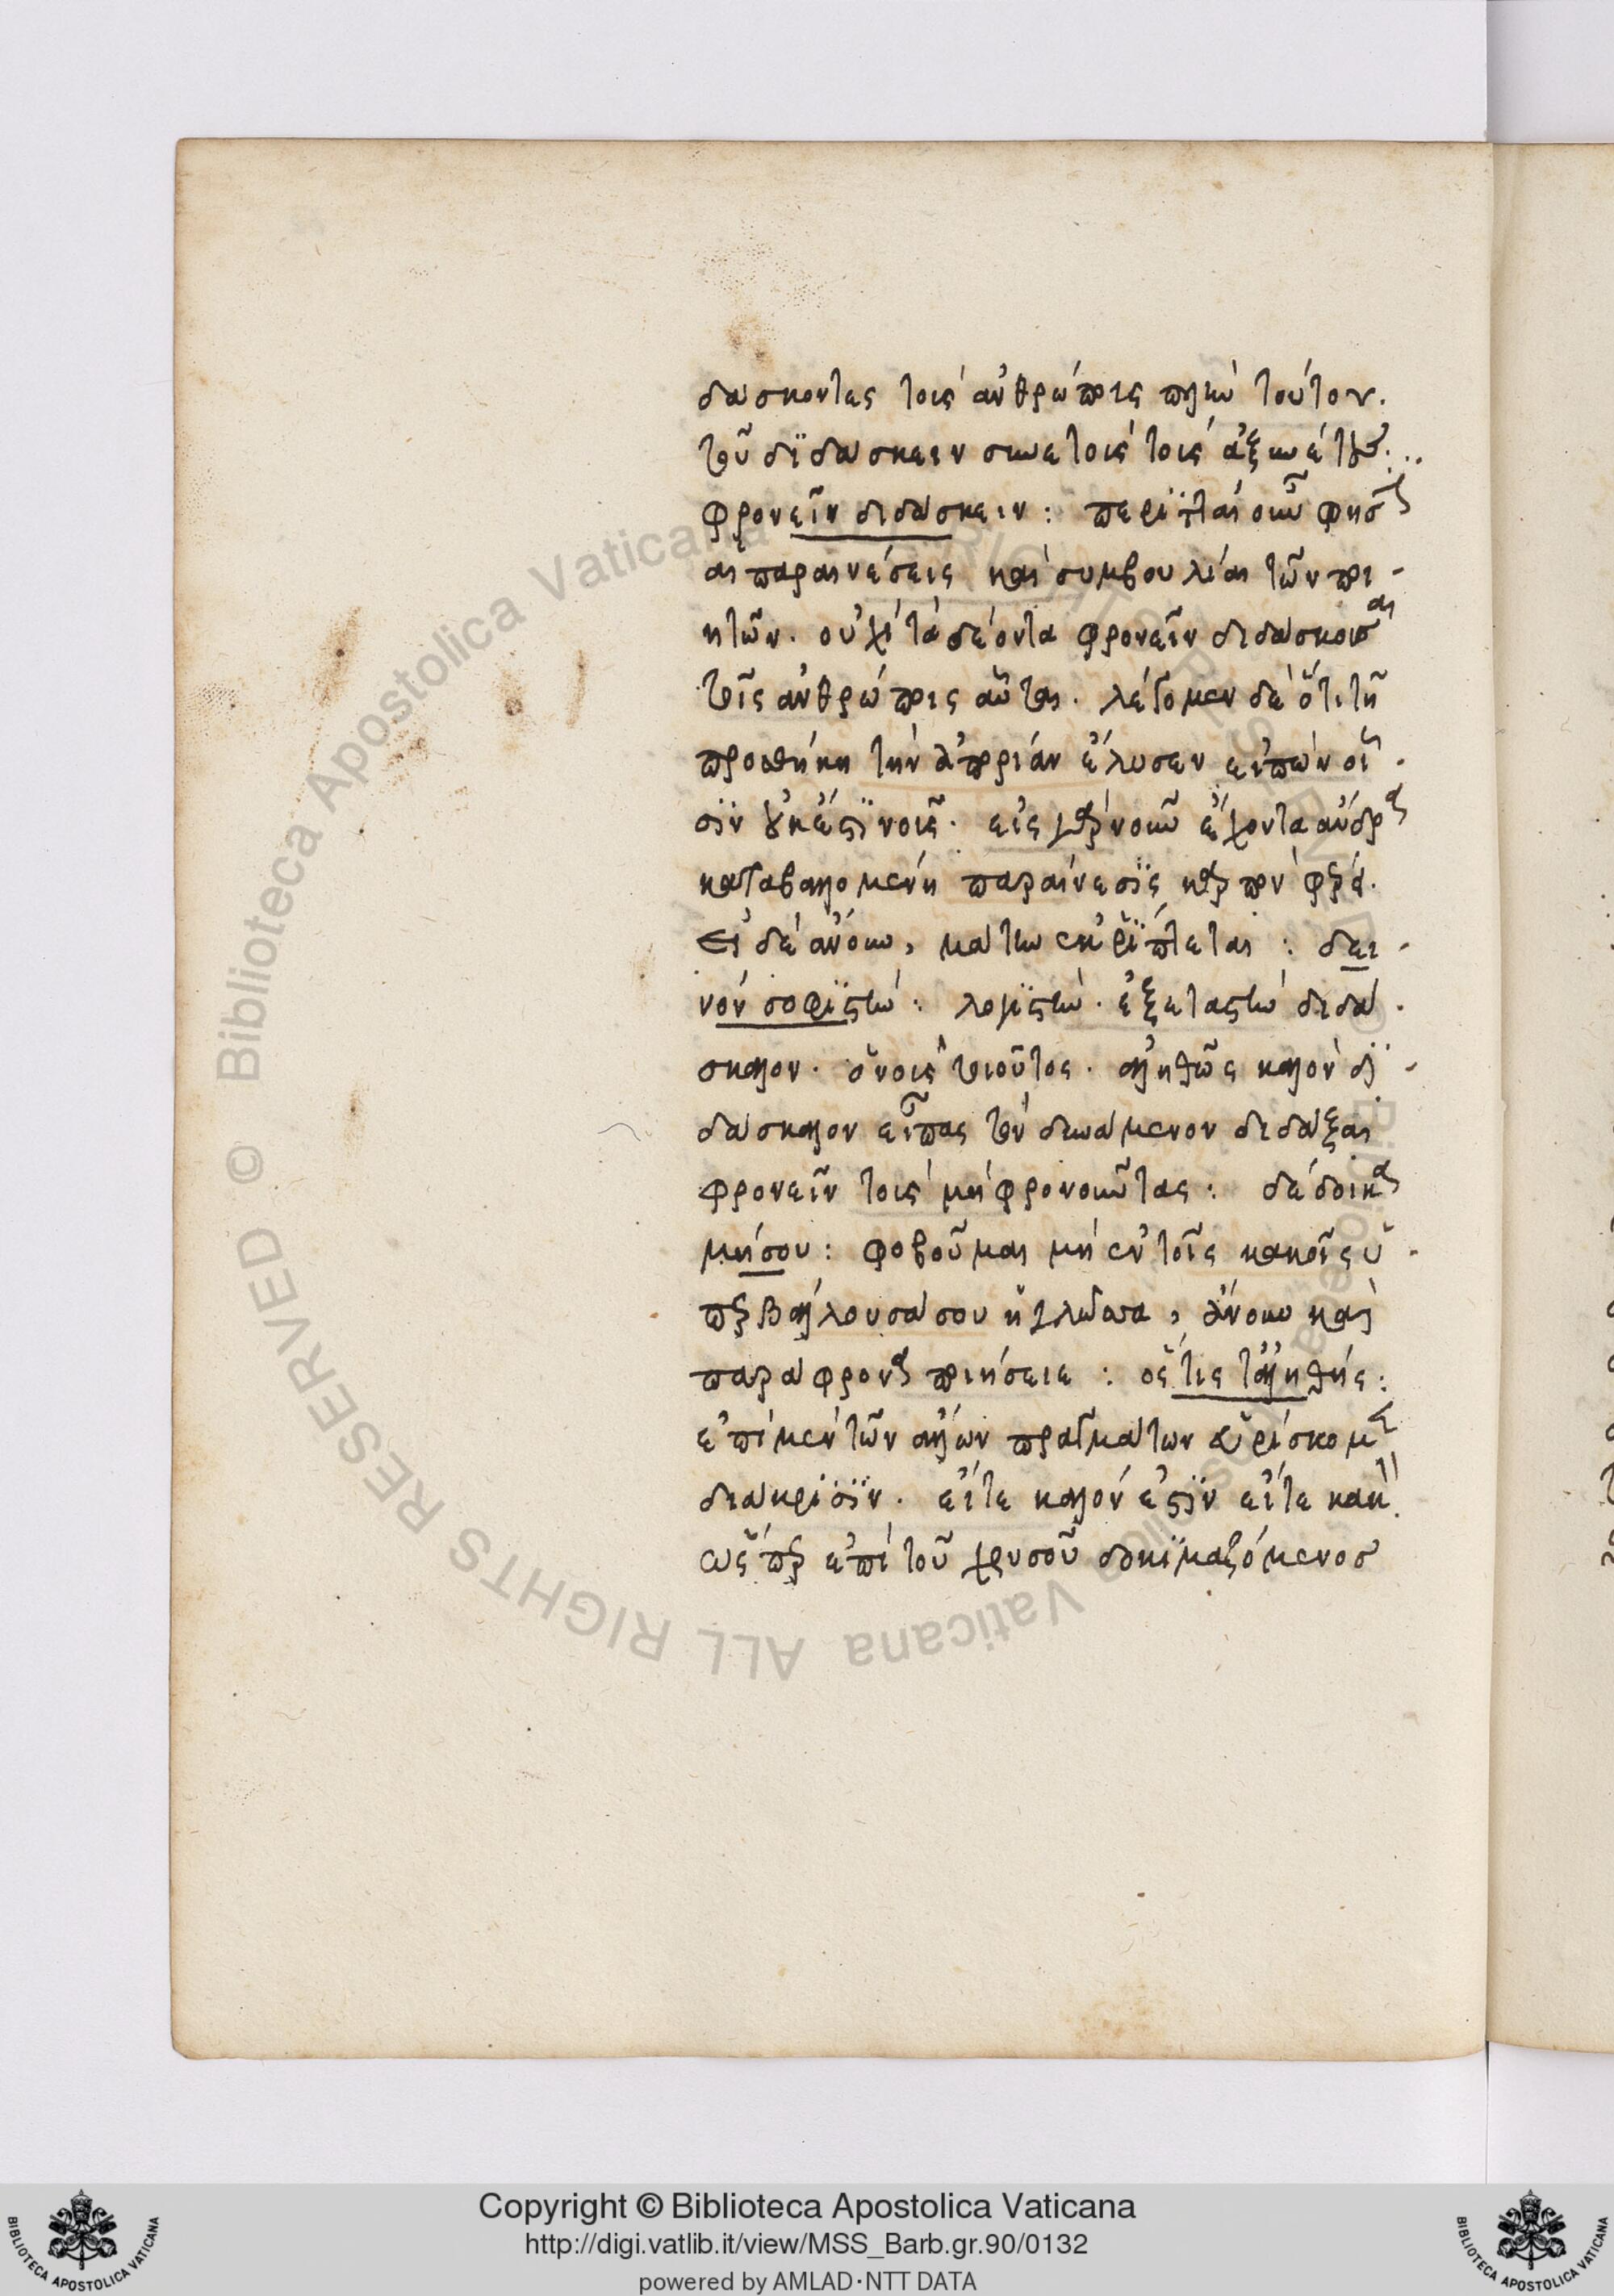 δάσκοντες τοὺς ἀνθρώπους πλὴν τούτου.
τοῦ διδάσκειν συνετοὺς τοὺς ἀξυνέτους...
φρονεῖν διδάσκειν: περιτταὶ οὖν φησ
αἱ παραινέσεις καὶ συμβουλίαι τῶν ποι-
ητῶν. οὐχὶ τὰ δέοντα φρονεῖν διδάσκουσαι
τοῖς ἀνθρώποις αὗται. λέγομεν δὲ ὅτι τῇ
προσθήκῃ τὴν ἀπορίαν ἔλυσεν εἰπὼν οἷ-
σιν οὐκ ἔστι νοῦς. εἰς μὲν νοῦν ἔχοντα ἄνδρα
καταβαλλομένη παραίνεσις καρπὸν φέρει.
εἰ δὲ ἄνουν, μάτην ἐκρίπτεται: δει-
νὸν σοφιστὴν: λογιστὴν. ἐξεταστὴν διδά-
σκαλον. ὁ νοῦς τοιοῦτος. ἀληθῶς καλὸν δι-
δάσκαλον εἶπας τὸν δυνάμενον διδάξαι
φρονεῖν τοὺς μὴ φρονοῦντας: δέδοικα
μή σου: φοβοῦμαι μὴ ἐν τοῖς κακοῖς ὑ-
περβάλλουσά σου ἡ γλῶσσα, ἄνουν καὶ
παράφρονα ποιήσειε: ὅς τις τ' ἀληθής:
ἐπὶ μὲν τῶν ἄλλων πραγμάτων εὑρίσκομεν
διάκρισιν. εἴτε καλόν ἐστιν εἴτε κακὸν.
ὥσπερ ἐπὶ τοῦ χρυσοῦ δοκιμαζόμενος
Copyright © Biblioteca Apostolica Vaticana
http://digi.vatlib.it/view/MSS_Barb.gr.90/0132
powered by AMLAD·NTT DATA